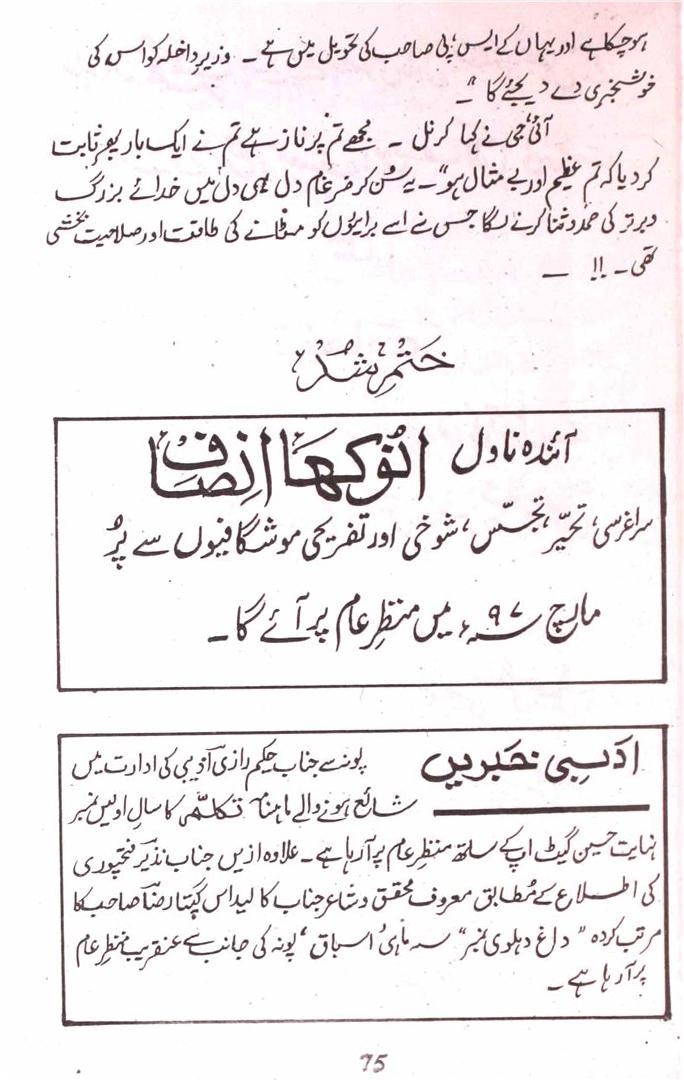 ہو چکا ہے اور یہاں کے ایس، پی صاحب کی تحویل میں ہے ۔ وزیرِ داخلہ کو اس کی
خوشخبری دے دیجئے گا "۔
آئی جی نے کہا کرنل ۔ مجھے تم پر ناز ہے تم نے ایک بار پھر ثابت
کر دیا کہ تم عظیم اور بے مثال ہو"۔ یہ سُن کر ضرغام دل ہی دل میں خدائے بزرگ
و برتر کی حمد و ثنا کرنے لگا جس نے اسے برایوں کو مٹانے کی طاقت اور صلاحیت بخشی
تھی ۔ !! —
ختم شد
آئندہ ناول انوکھا انصاف
سراغرسی، تحیّر، تجسّس، شوخی اور تفریحی موشگافیوں سے پُر
مارچ ۹۷ء میں منظرِ عام پر آئے گا ۔
ادبی خبریں پونہ سے جناب حکیم رازی ادیبی کی ادارت میں
شائع ہونے والے ماہنامہ تکلم کا سالِ اولیں نمبر
نہایت حسین گیٹ اپ کے ساتھ منظرِ عام پر آ رہا ہے ۔ علاوہ ازیں جناب نذیر فتحپوری
کی اطلاع کے مُطابق معروف محقق و شاعر جناب کالیداس گپتا رضا صاحب کا
مرتب کردہ " داغ دہلوی نمبر" سہ ماہی اسباق، پونہ کی جانب سے عنقریب منظرِ عام
پر آ رہا ہے ۔
75